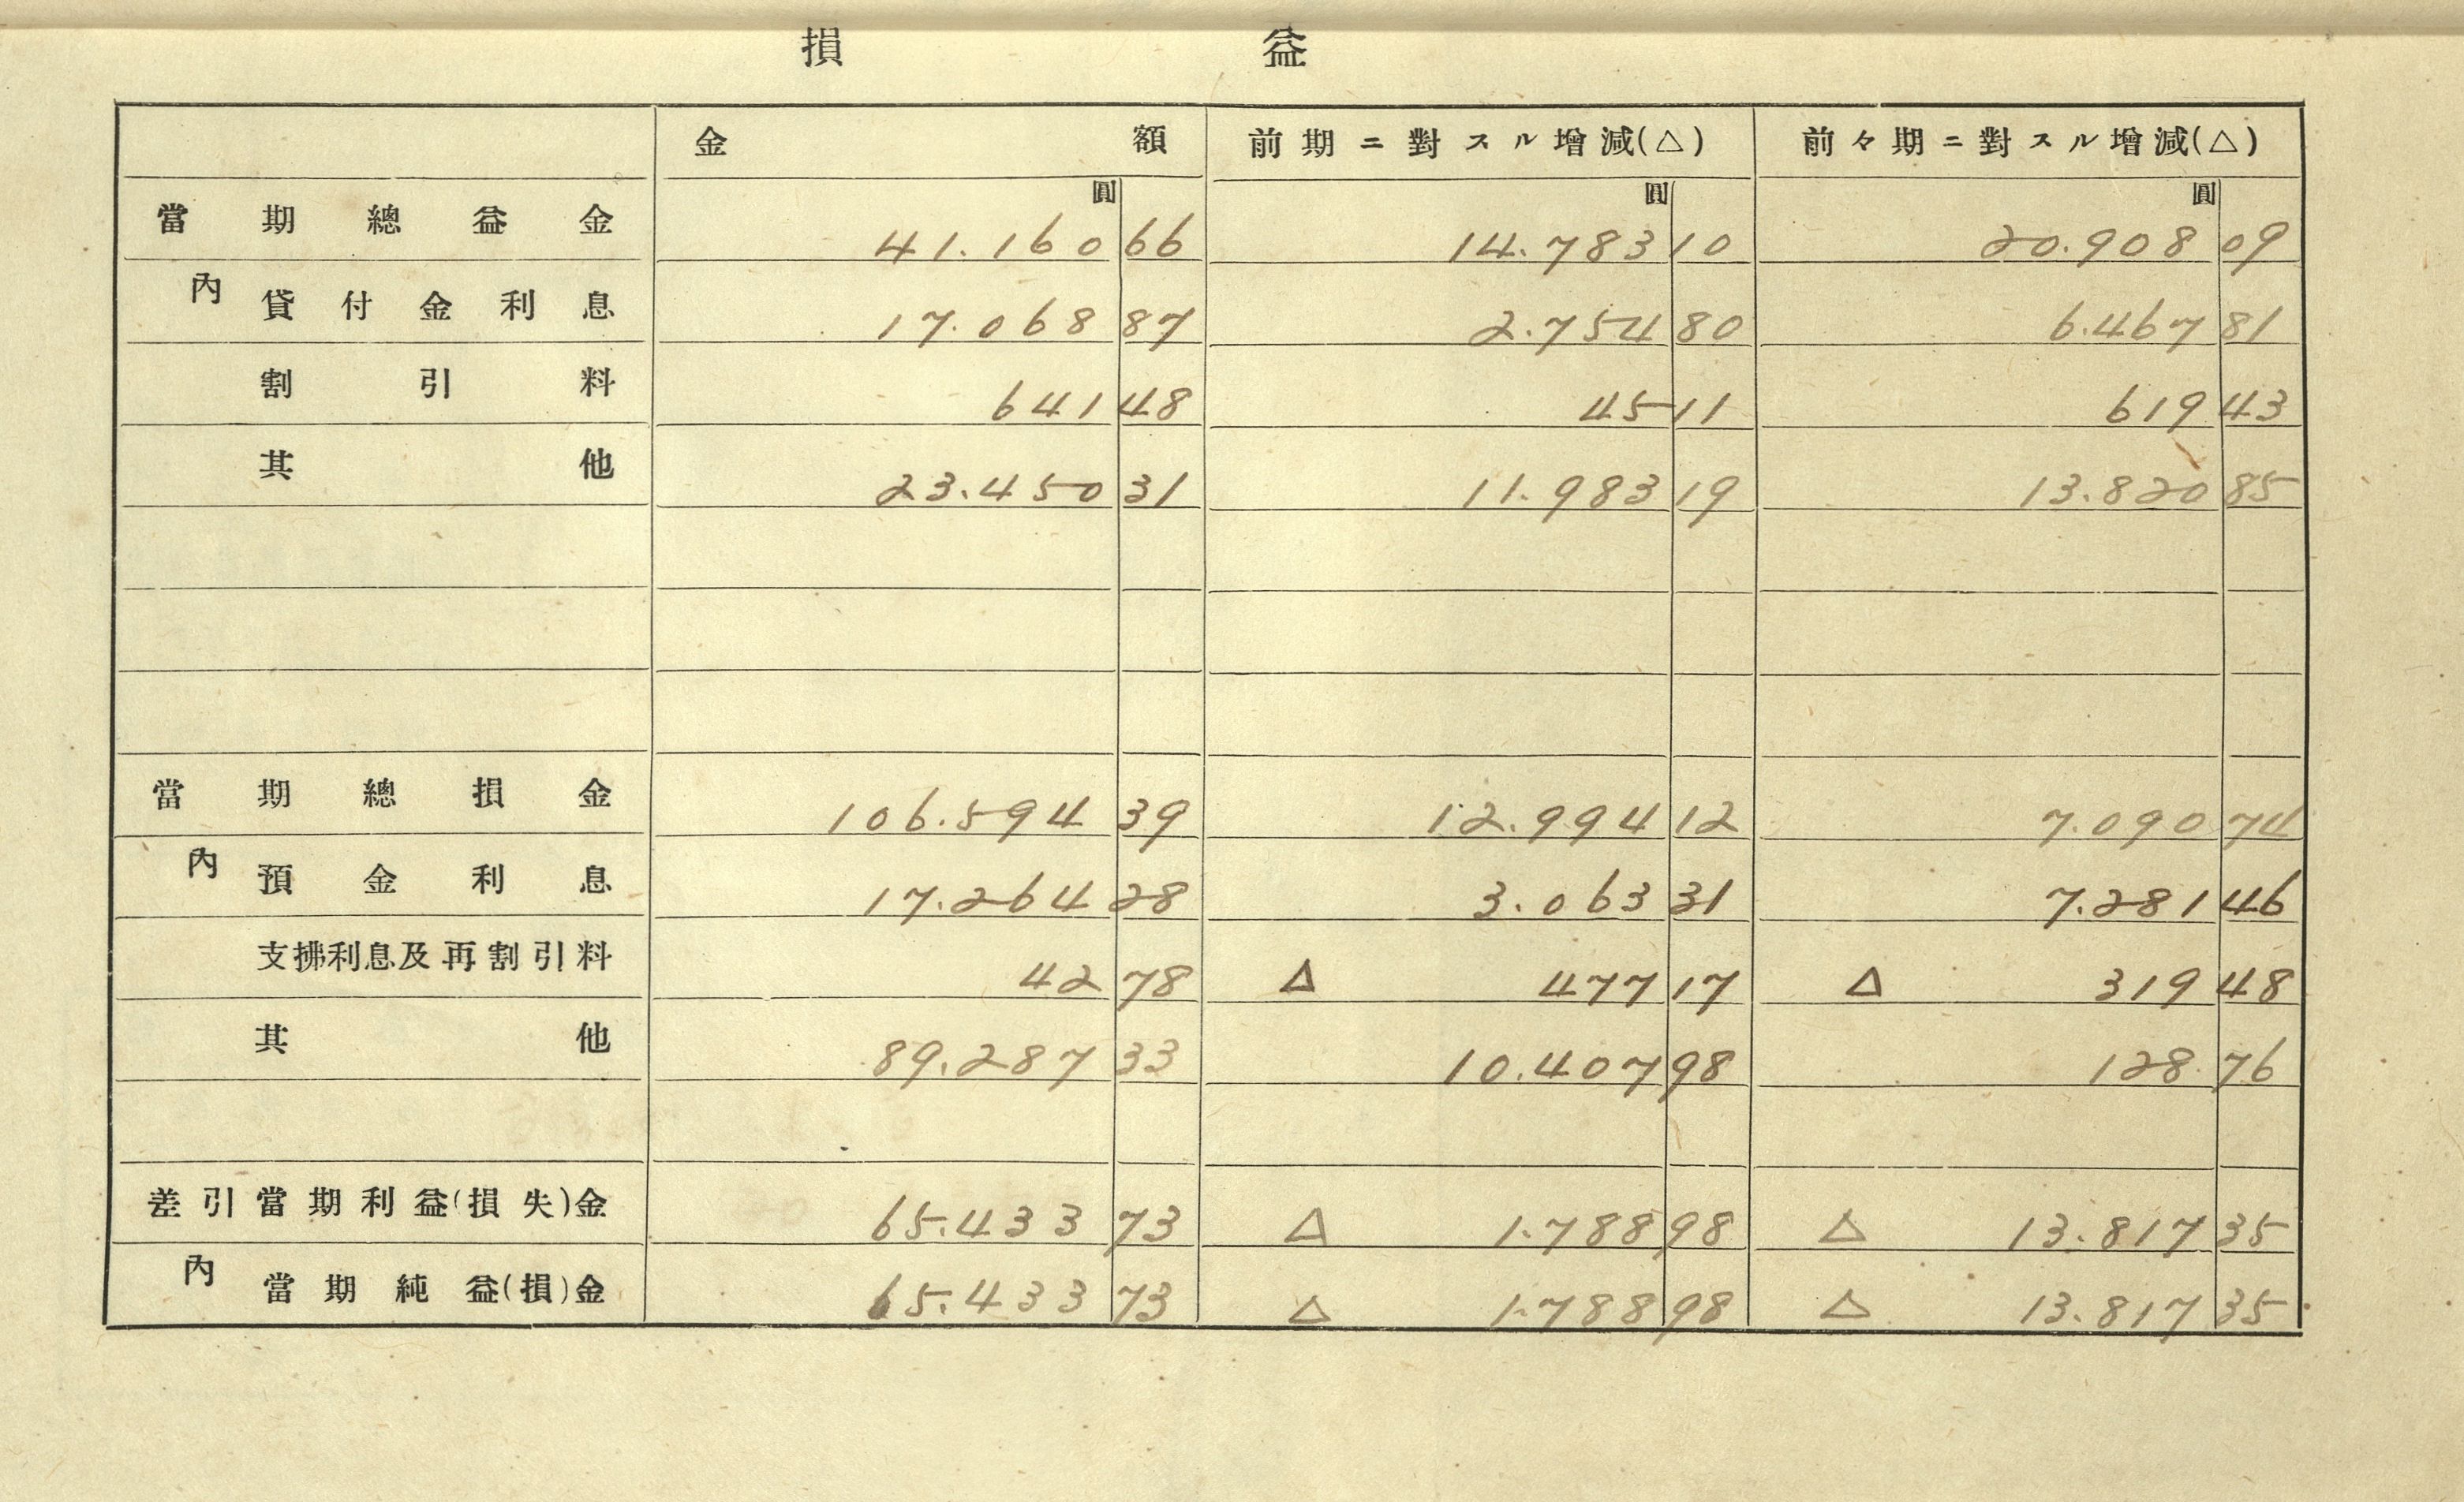 損益
金額 前期ニ對スル增減(△) 前々期ニ對スル增減(△)
圓 圓 圓
當期總益金 41.160 66 14.783 10 20.908 09
內 貸付金利息 17.068 87 2.754 80 6.467 81
割引料 641 48 45 11 619 43
其他 23.450 31 11.983 19 13.820 85
當期總損金 106.594 39 12.994 12 7.090 74
內 預金利息 17.264 28 3.063 31 7.281 46
支拂利息及再割引料 42 78 △ 477 17 △ 319 48
其他 89.287 33 10.407 98 128 76
差引當期利益(損失)金 65.433 73 △ 1.788 98 △ 13.817 35
內 當期純益(損)金 65.433 73 △ 1.788 98 △ 13.817 35